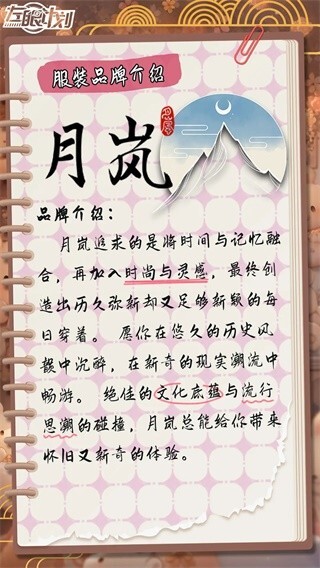 左眼计划
服装品牌介绍
月岚
品牌介绍：
月岚追求的是将时间与记忆融
合，再加入时尚与灵感，最终创
造出历久弥新却又足够新颖的每
日穿着。 愿你在悠久的历史风
韻中沉醉，在新奇的现实潮流中
畅游。 绝佳的文化底蕴与流行
思潮的碰撞，月岚总能给你带来
怀旧又新奇的体验。